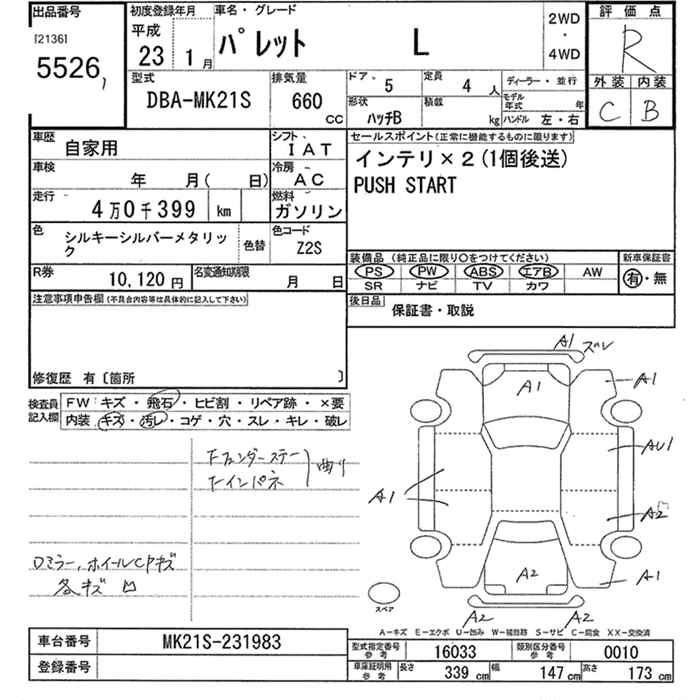 出品番号
[2136]
5526
初度登録年月
平成
23 1月
車名・グレード
パレット L
2WD
・
4WD
評価点
R
外装 内装
C B
型式
DBA-MK21S
排気量
660
CC
ドア・ 5
定員 4 人
ディーラー・並行
形状 ハッチB
積載 kg
モデル年式 年
ハンドル 左・右
車歴
自家用
シフト
IAT
車検
年 月( 日)
冷房
AC
走行
4万0千399 km
燃料
ガソリン
色
シルキーシルバーメタリック
色替
色コード
Z2S
R券
10,120円
名変通知期限
月 日
セールスポイント(正常に機能するものに限ります)
インテリ×2(1個後送)
PUSH START
装備品 (純正品に限り○をつけてください)
PS PW ABS エアB AW
SR ナビ TV カワ
新車保証書
有・無
後日品
保証書・取説
注意事項申告欄(不具合内容等は具体的に記入して下さい)
修復歴 有〔箇所 〕
検査員記入欄
FW:キズ・飛石・ヒビ割・リペア跡・×要
内装.キズ・汚レ・コゲ・穴・スレ・キレ・破レ
Fフェンダーステー
Fインパネ
曲り
Dミラー、ホイールCPキズ
各キズ 凹
A1 ズレ
A1
A1
AU1
A1
A2
A1
A2
A2
A2
スペア
A−キズ E−エクボ U−凹み W−補修跡 S−サビ C−腐食 XX−交換済
車台番号
MK21S-231983
登録番号
型式指定番号 参考
16033
類別区分番号 参考
0010
車庫証明用 参考
長さ 339 cm
幅 147 cm
高さ 173 cm